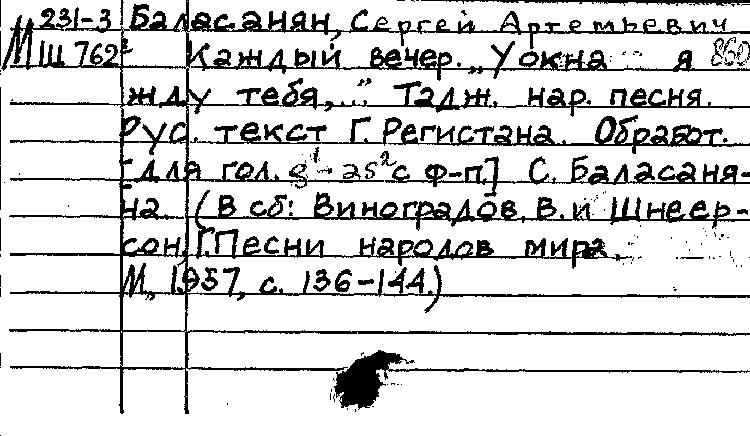 М 231-3 Баласанян, Сергей Артемьевич
Ш 762² Каждый вечер. „У окна я 860
жду тебя,..." Тадж. нар. песня.
Рус. текст Г. Регистана. Обработ.
[для гол. g¹-as² с ф-п.] С. Баласаня-
на. (В сб: Виноградов, В. и Шнеер-
сон, Г. Песни народов мира.
М., 1957, с. 136-144.)